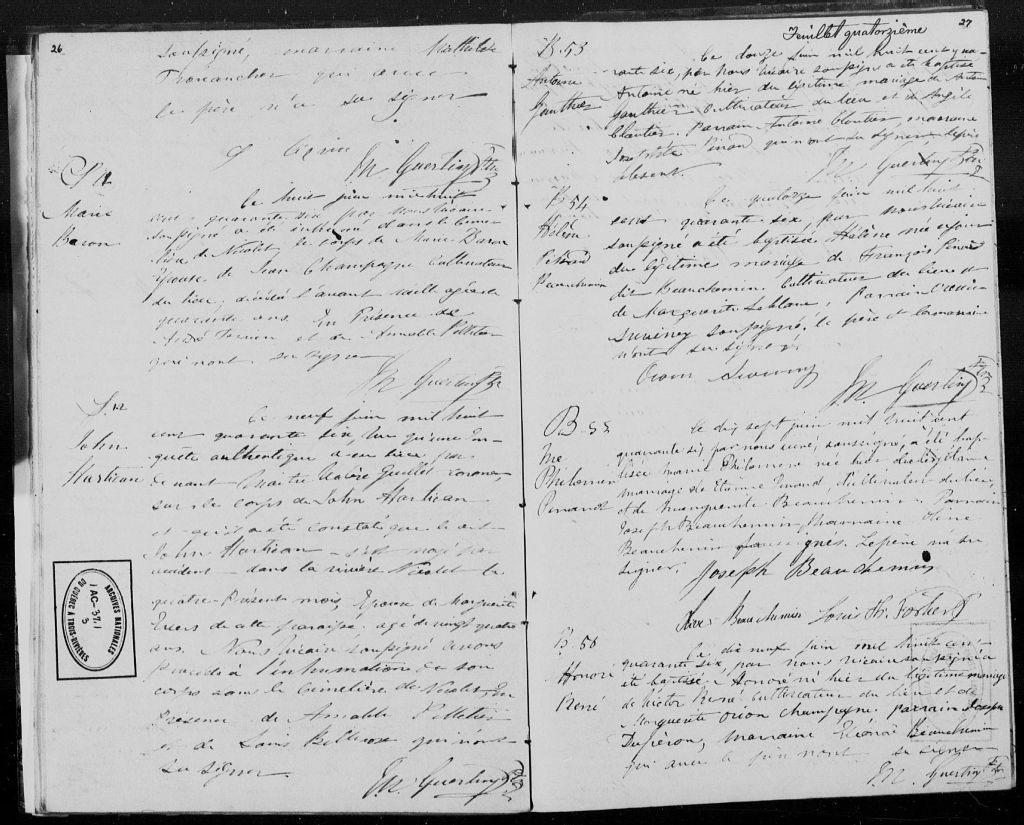 26
soussigné, marraine Mathilde
qui avec
le père n'a su signer
J. N. Guertin Ptre
S 12
Marie
Baron
Le huit juin mil huit
cent quarante six, par nous vicaire
soussigné a été inhumé dans le cime
tière de Nicolet le corps de Marie Baron
Epouse de Jean Champagne Cultivateur
du lieu, décédé l'avant veille agée de
quarante ans. En Présence de
et de Amable Pelletier
qui n'ont su signer
J. N. Guertin Ptre
S. 12
John
Hartican
Le neuf juin mil huit
cent quarante six, vu qu'une En
quete authentique a eu lieu par
devant Maitre Guillet coroner
sur le corps de John Hartican
et qu'il a été constaté que le dit
John Hartican s'est noyé par
accident dans la rivière Nicolet le
quatre Présent mois, Epoux de Marguerite
de cette paroisse, agé de vingt quatre
ans. Nous vicaire soussigné avons
procédé à l'inhumation de son
corps dans le cimetière de Nicolet, En
Présence de Amable Pelletier
et de Louis Bellerose qui n'ont
su signer
J. N. Guertin Ptre
ARCHIVES NATIONALES
DU QUÉBEC A TROIS-RIVIÈRES
27
Feuillet quatorzième
B. 53
Antoine
Gauthier
Le douze juin mil huit cent qua
rante six, par nous vicaire soussigné a été baptisé
Antoine né hier du légitime mariage de Antoine
Gauthier Cultivateur du lieu et de Angèle
Cloutier. Parrain Antoine Cloutier, marraine
Josephte Pinard qui n'ont su signer, le père
absent.
J. N. Guertin Ptre
B. 54
Hélène
Pinard
Beauchemin
Le quatorze juin mil huit
cent quarante six, par nous vicaire
soussigné a été baptisée Hélène née ce jour
du légitime mariage de François Pinard
dit Beauchemin Cultivateur du lieu et
de Marguerite Leblanc, Parrain
soussigné, le père et la marraine
n'ont su signer.
J. N. Guertin Ptre
B. 55
Philomène
Le dix sept juin mil huit cent
quarante six par nous curé, soussigné, a été bap
tisée Marie Philomène née hier du légitime
mariage de Etienne cultivateur du lieu,
et de Marguerite Beauchemin. Parrain
Joseph Beauchemin Marraine Olive
Beauchemin soussignés. Le père n'a su
signer.
Joseph Beauchemin
Beauchemin Louis
B. 56
Honoré
René
Le dix neuf juin mil huit cent
quarante six, par nous vicaire soussigné a
été baptisé Honoré né hier du légitime mariage
de Victor René Cultivateur du lieu et de
Marguerite Orion Champagne. parrain Joseph
marraine Beauchemin
qui avec le père n'ont su signer
J. N. Guertin Ptre